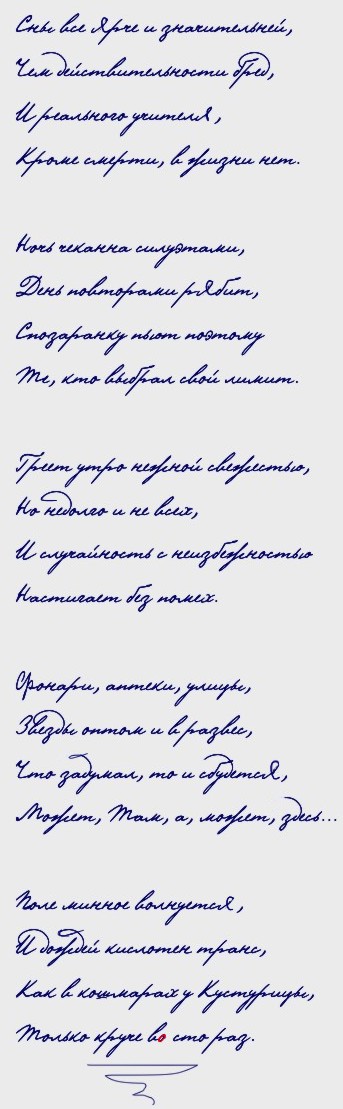 Сны все ярче и значительней,
Чем действительности бред,
И реального учителя,
Кроме смерти, в жизни нет.
Ночь чеканна силуэтами,
День повторами рябит,
Спозаранку пьют поэтому
Те, кто выбрал свой лимит.
Греет утро нежной свежестью,
Но недолго и не всех,
И случайность с неизбежностью
Настигает без помех.
Фонари, аптеки, улицы,
Звезды оптом и в развес,
Что задумал, то и сбудется,
Может, Там, а, может, здесь...
Поле минное волнуется,
И дождей кислотен транс,
Как в кошмарах у Кустурицы,
Только круче во сто раз.